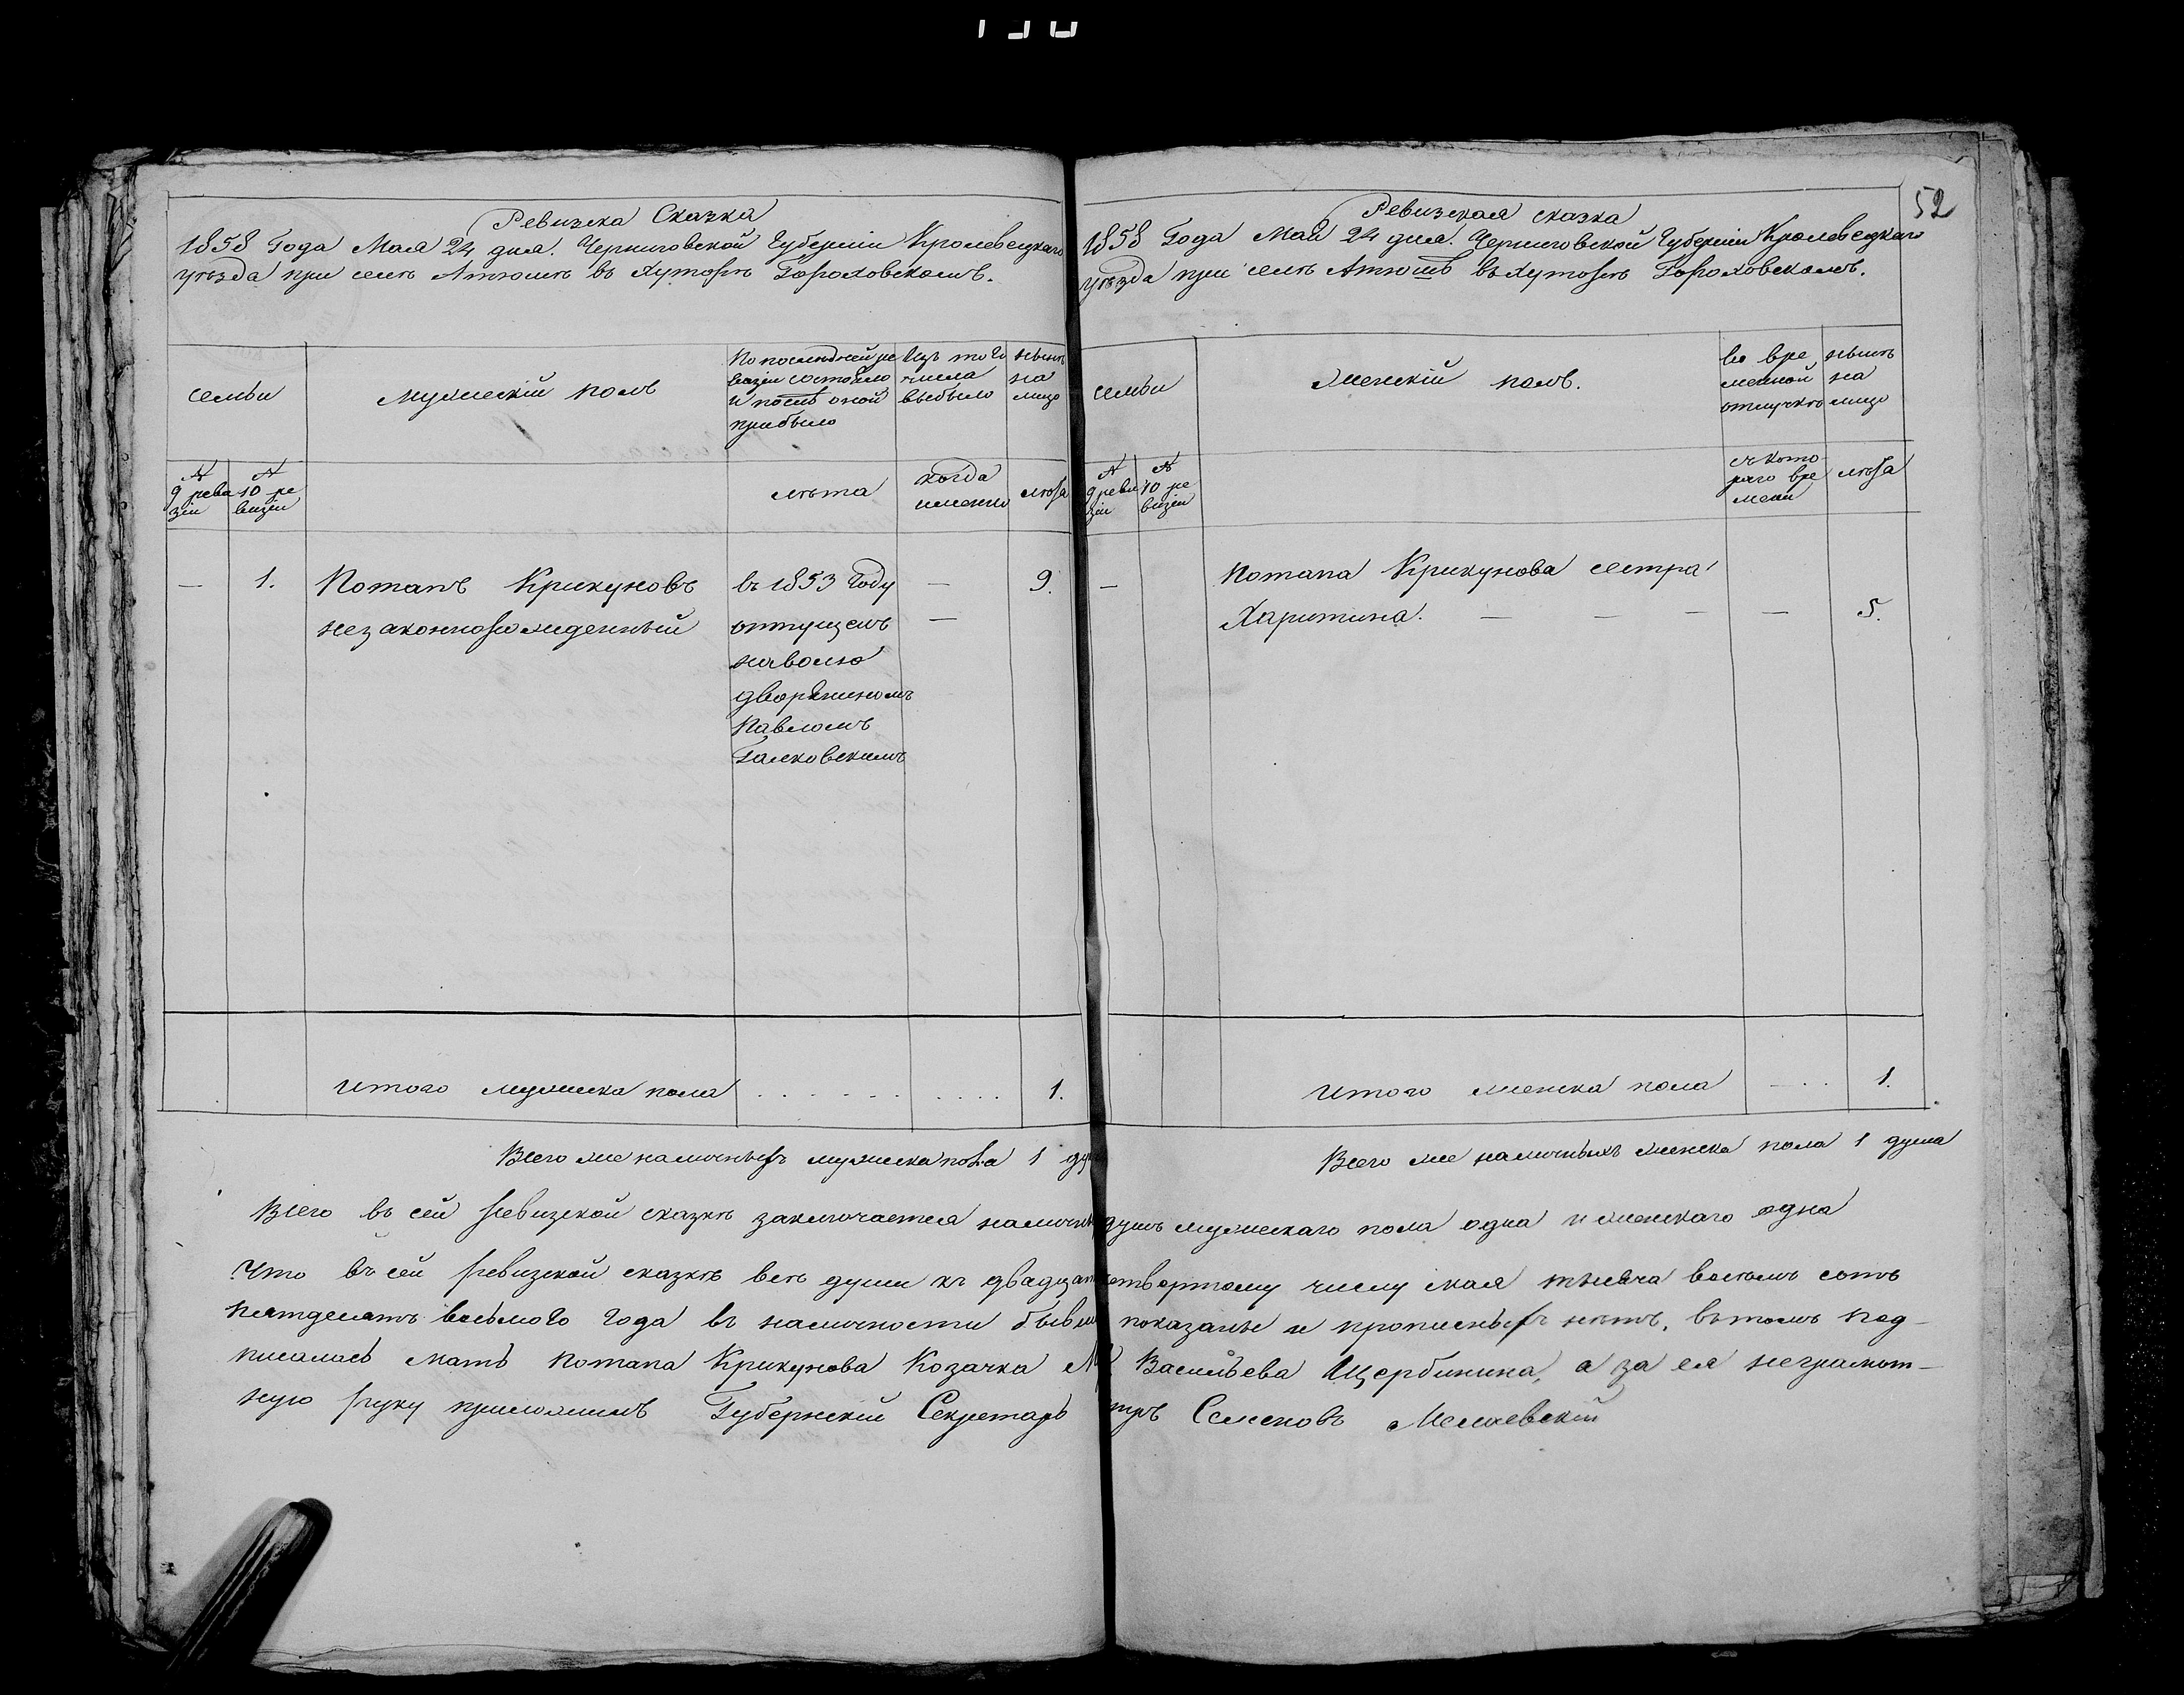 52
Ревизска Сказка
1858 Года Мая 24 дня. Черниговской Губерніи Кролевецкаго
уѣзда при селѣ Атюшѣ въ Хуторѣ Гороховскомъ.
семьи
мужескій полъ
По последней ре
визіи состояло
и послѣ оной
прибыло
Изъ того
числа
выбыло
нынѣ
на
лицо
№
9 реви
зіи
№
10 ре
визіи
лѣта
когда
именно
лѣта
— 1. Потапъ Крикуновъ въ 1853 Году — 9.
незаконнорожденный отпущенъ —
наволю
дворяниномъ
Павломъ
Итого мужеска пола . . . . . . . . . . 1.
Всего же наличныхъ мужеска пола 1
Ревизская сказка
1858 Года Май 24 дня. Черниговской Губерніи Кролевецкаго
уѣзда при селѣ Атюшѣ въ Хуторѣ Гороховскомъ.
семьи
женскій полъ.
во вре
менной
отлучкѣ
нынѣ
на
лицо
№
9 реви
зіи
№
10 ре
визіи
съ кото
раго вре
мени
лѣта
— Потапа Крикунова сестра
Харитина. — — — — 5.
Итого женска пола — . . 1.
Всего же наличныхъ женска пола 1 душа
Всего въ сей ревизской сказкѣ заключается душъ мужескаго пола одна и женскаго одна
Что въ сей ревизской сказкѣ всѣ души къ числу мая тысяча восемъ сотъ
пятдесятъ восьмого Года въ наличности показаны и прописныхъ нѣтъ, въ томъ под-
писалась мать Потапа Крикунова Козачка Васильева Щербинина, а за ея неграмот-
ную руку приложилъ Губернскій Секретарь Семеновъ